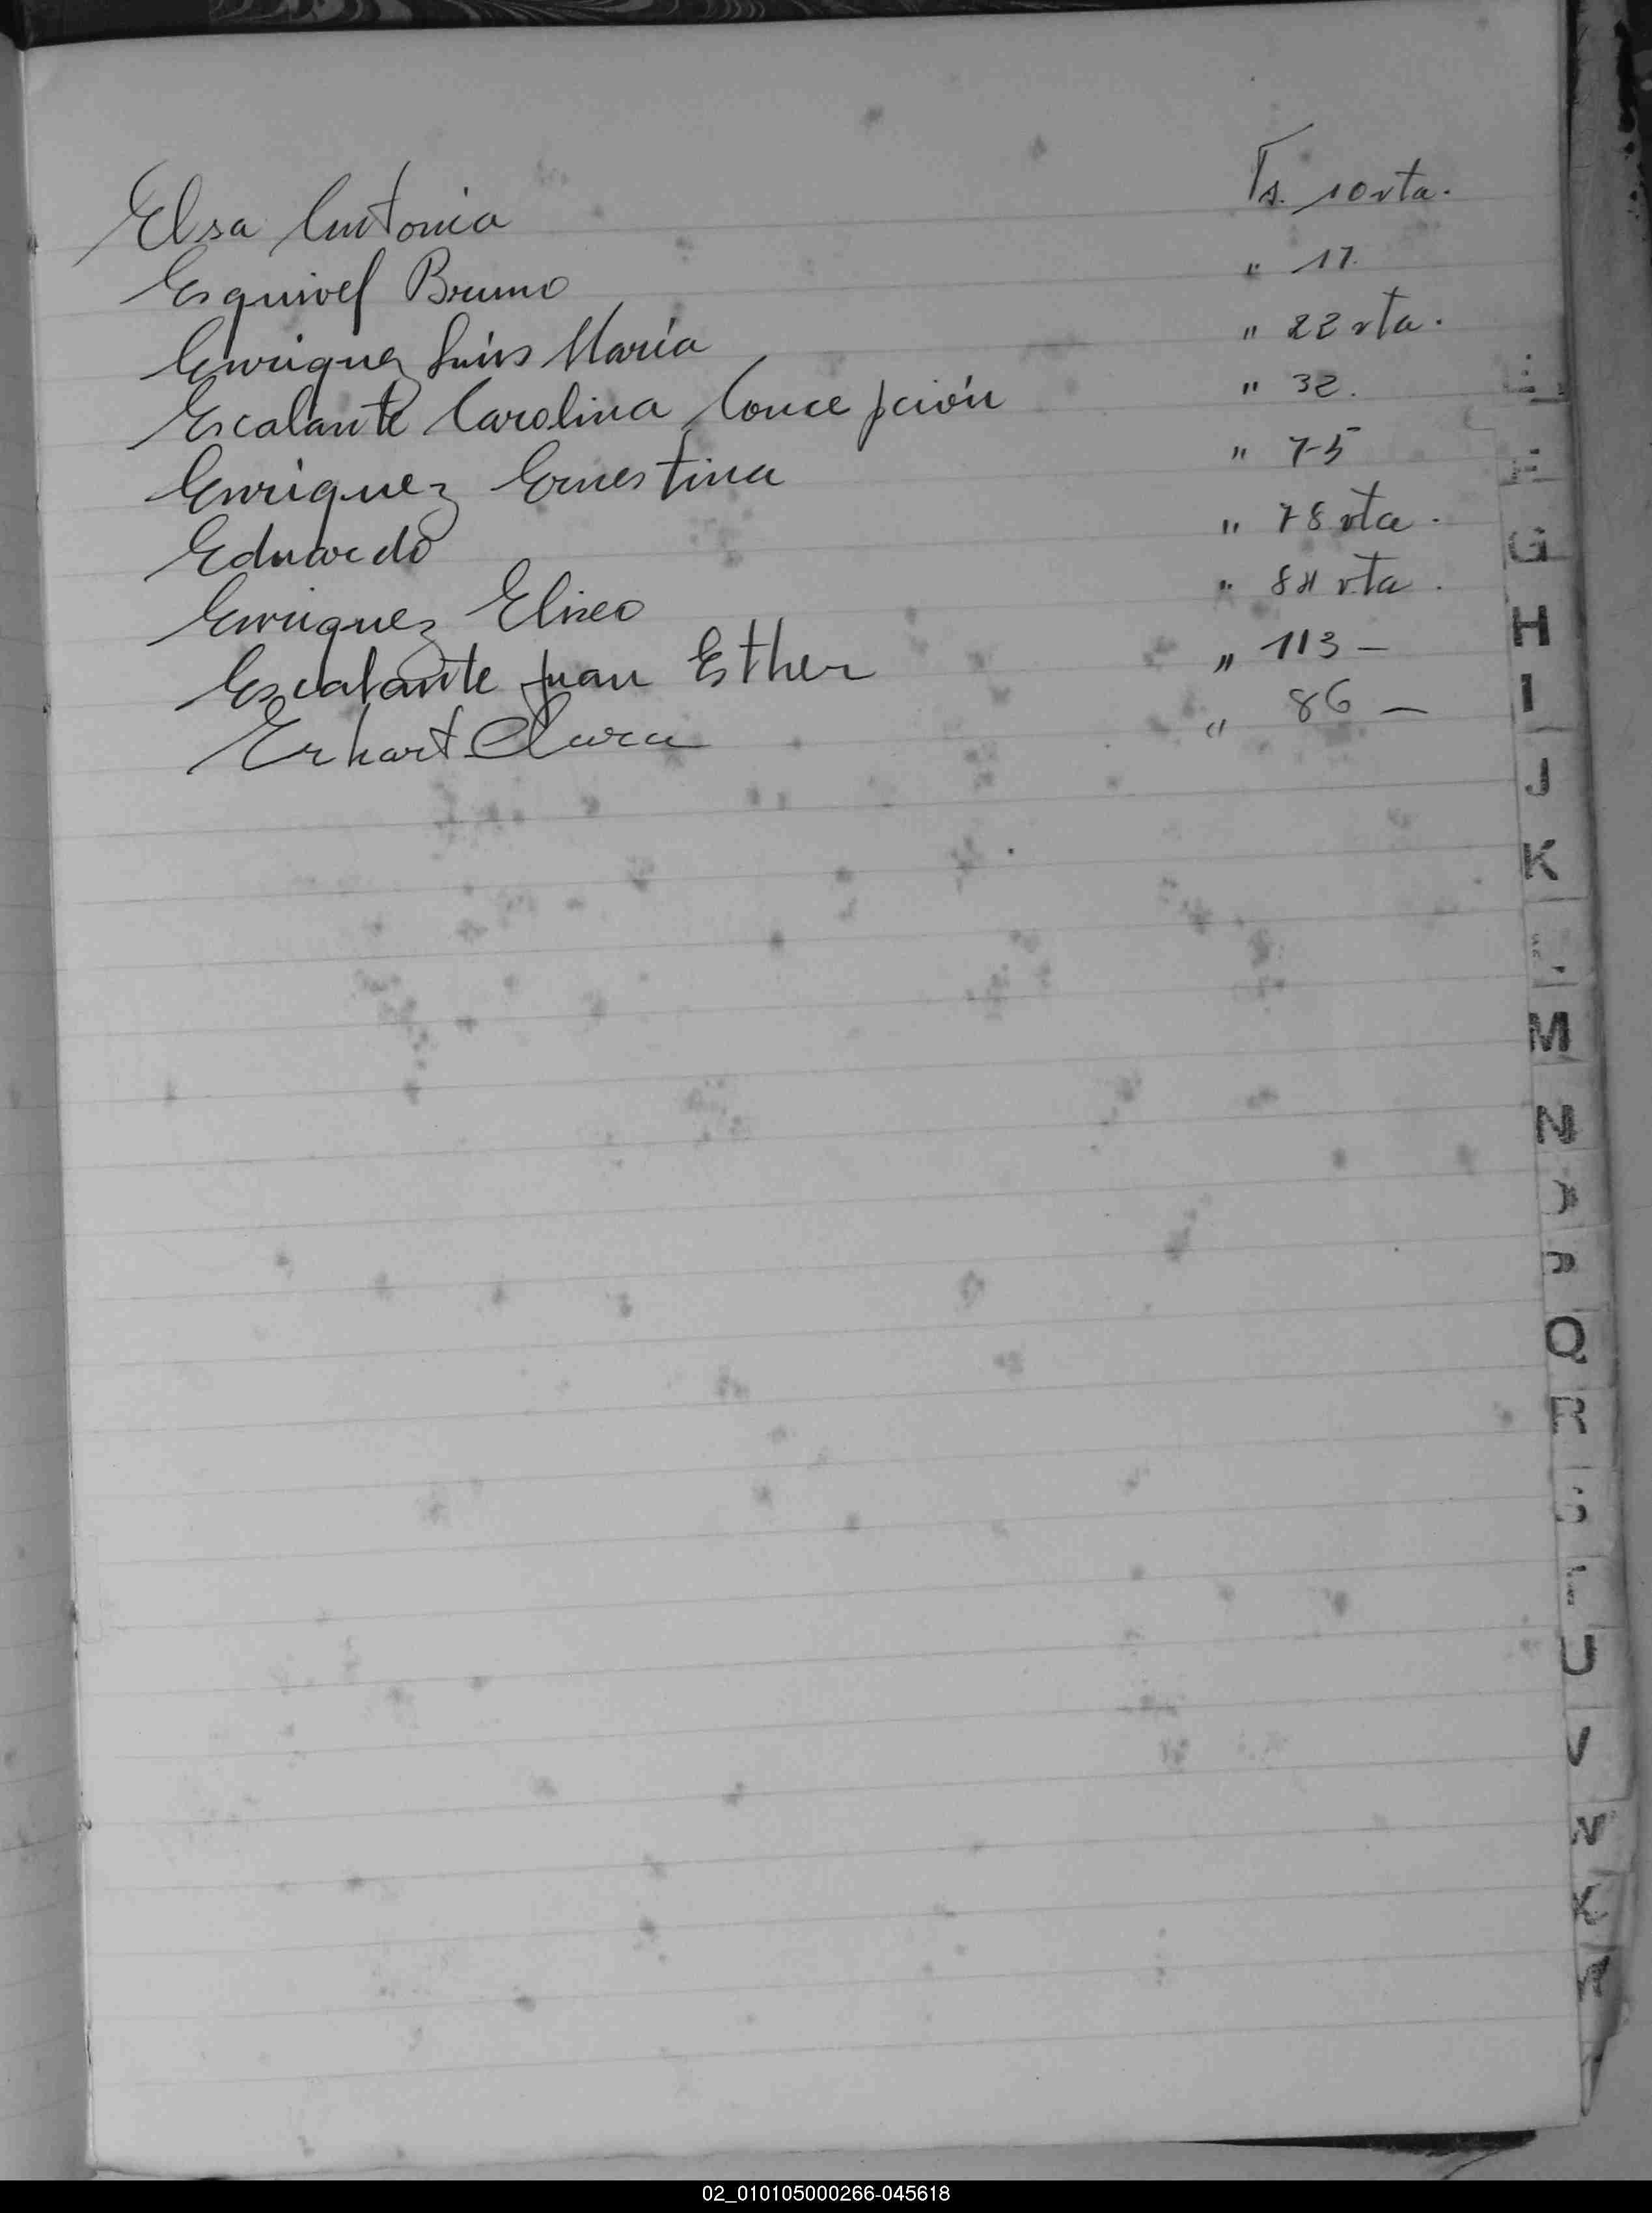 Elsa Antonia Fs. 10 vta.
Esquivel Bruno " 17.
Enriquez Luis María " 22 vta.
Escalante Carolina Concepción " 32.
Enriquez Ernestina " 75
Eduardo " 78 vta.
Enriquez Eliseo " vta.
Escalante Juan Esther " 113 —
Erhart Clara " 86 —
E
F
G
H
I
J
K
M
N
Q
R
S
U
V
02_010105000266-045618